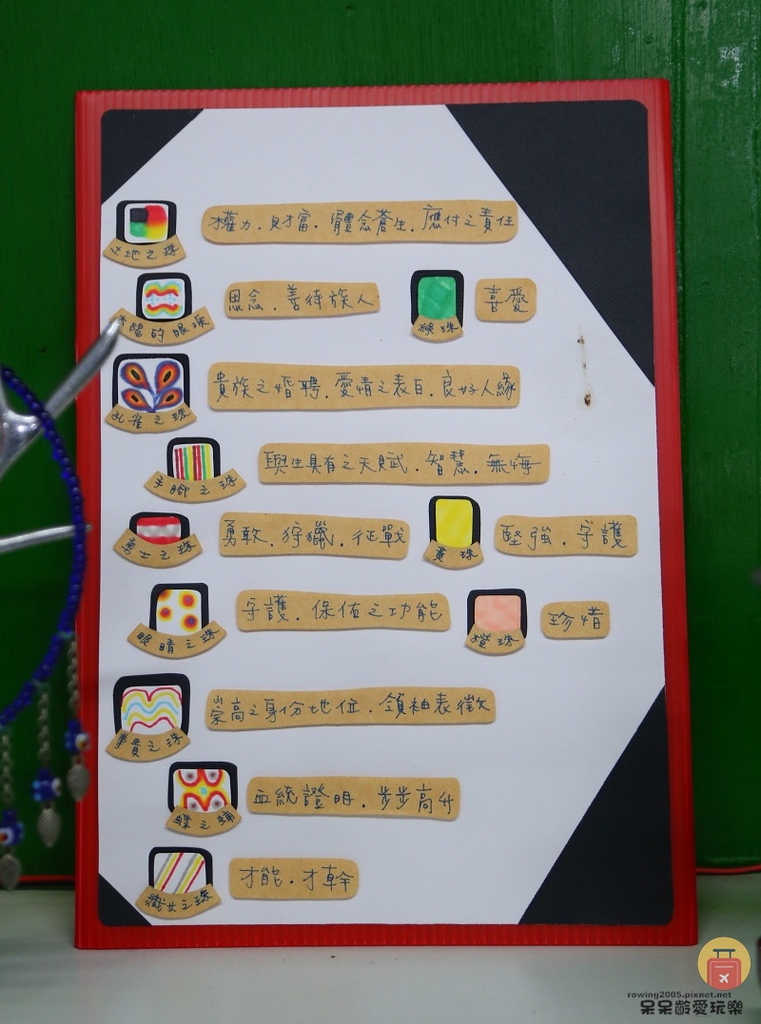 土地之珠
權力．財富．體念蒼生．應付之責任
太陽的眼淚
思念．善待族人
綠珠
喜愛
孔雀之珠
貴族之婚聘．愛情之表白．良好人緣
手腳之珠
與生具有之天賦．智慧．無悔
勇士之珠
勇敢．狩獵．征戰
黃珠
堅強．守護
眼睛之珠
守護．保佑之功能
橙珠
珍惜
高貴之珠
崇高之身份地位．領袖表徵
蝶之蛹
血統證明．步步高升
織女之珠
才能．才幹
rowing2005.pixnet.net
呆呆齡愛玩樂